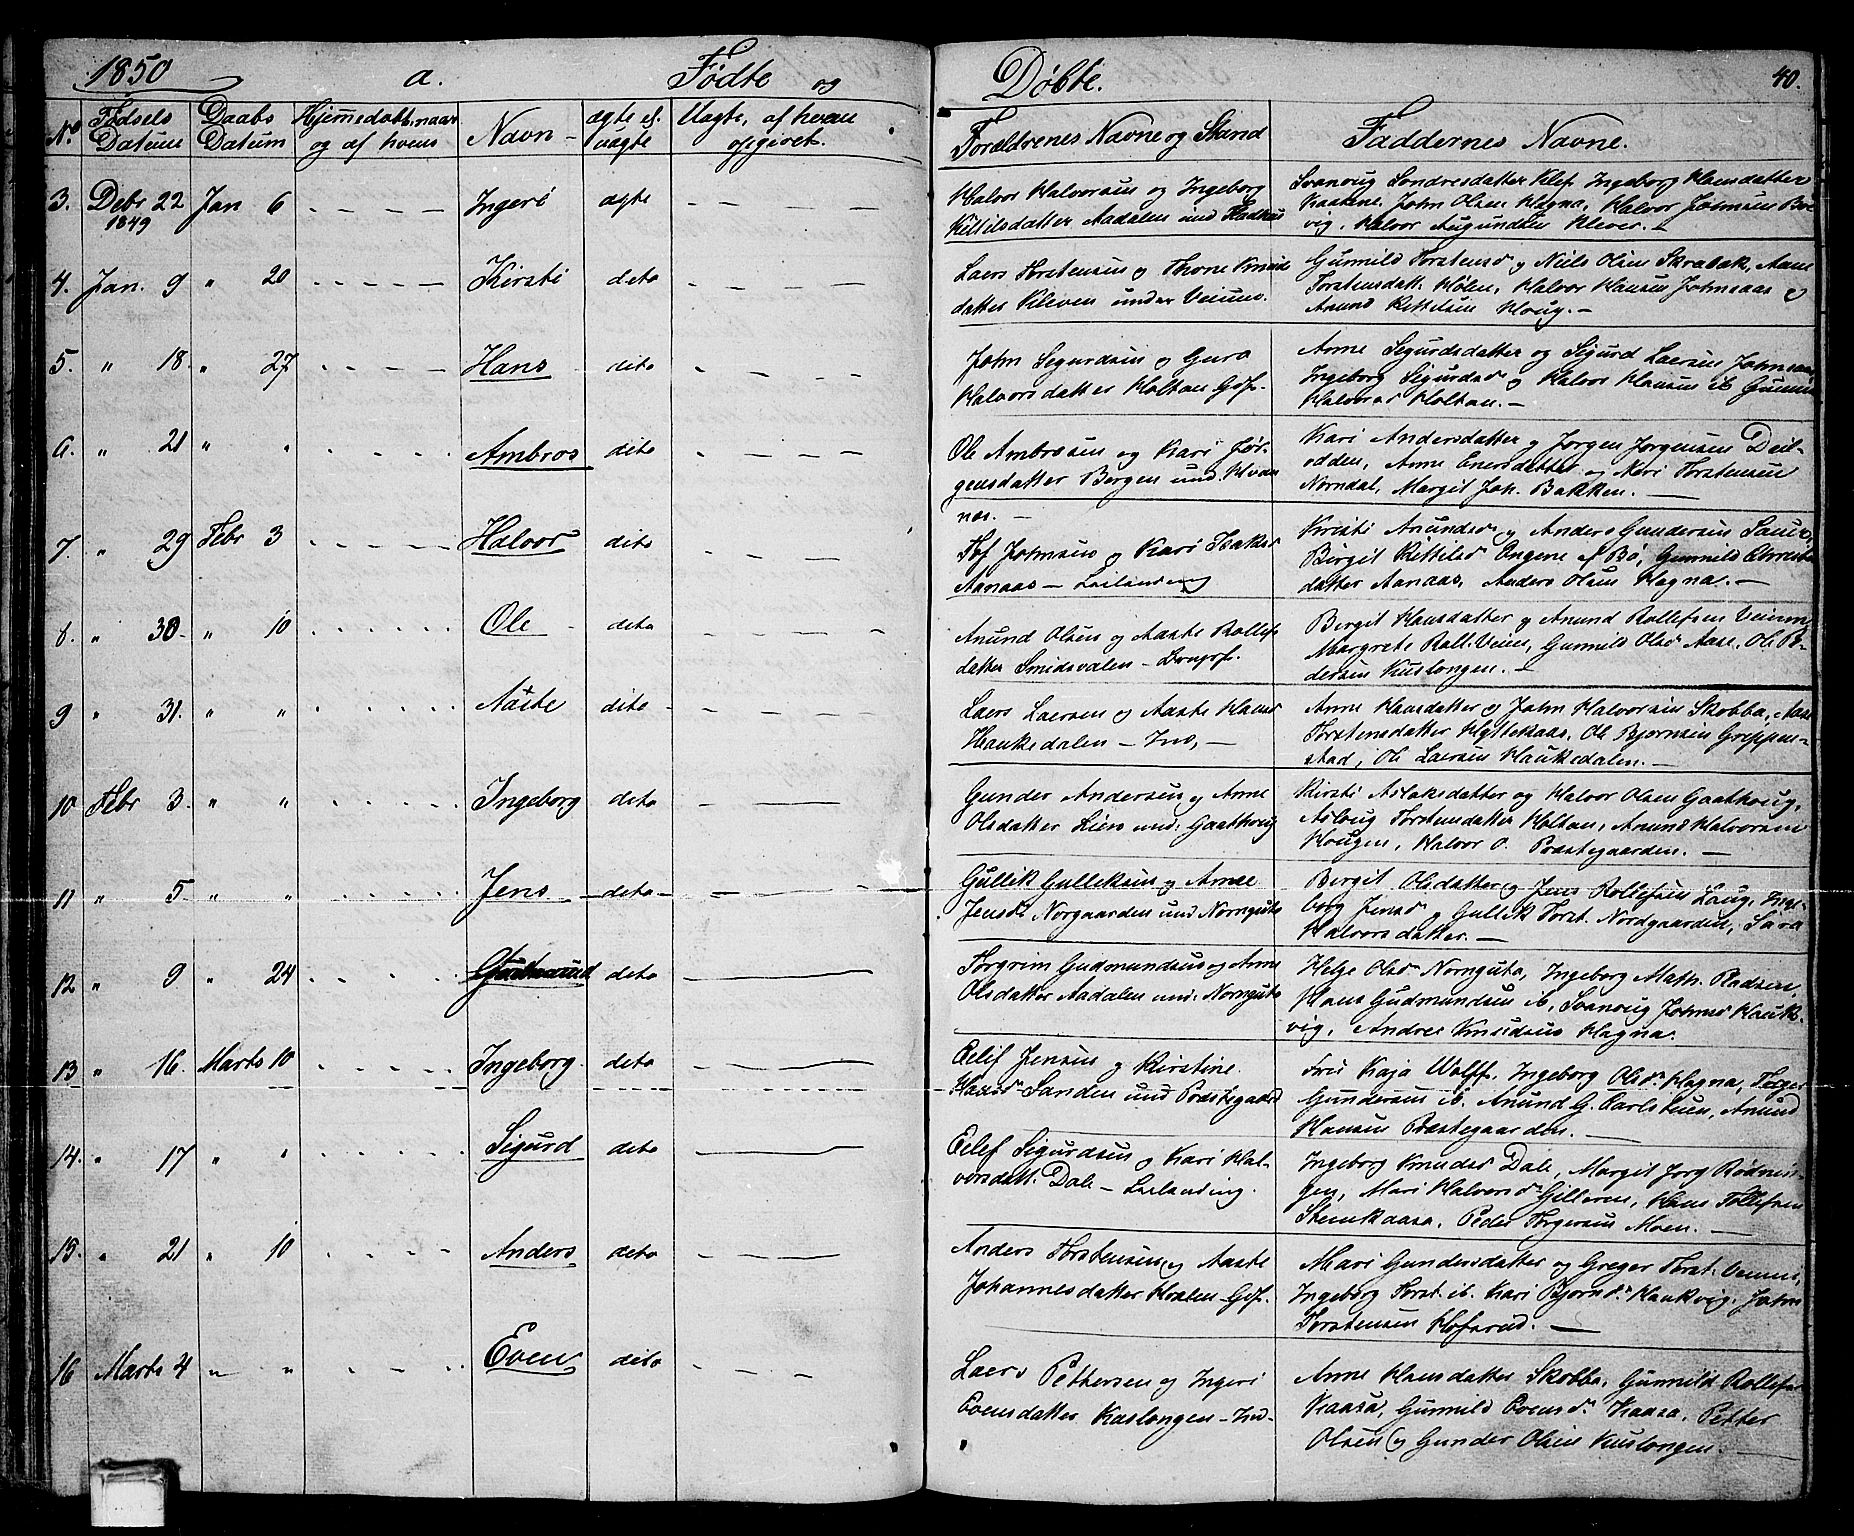 1850 a. Fødte og Døbte. 40.
No. Fødsels Datum Daabs Datum Hjemedøbt, naar og af hvem Navn ægte el. uægte Uægte, af hvem opgivet. Forældrenes Navne og Stand Faddernes Navne.
3. Debr 22 1849 Jan 6 Ingeri ægte
Halvor Halvorsen og Ingeborg
Kittilsdatter Aadalen und
Svanoug Sondresdatter Klef, Ingeborg Hansdatter
John Olsen Hagna, Halvor Johnsen
vig, Halvor Augundsen Klever.
4. Jan. 9 " 20 Kirsti dito
Laers Torstensen og Thone Knuds
datter Kleven under Veium.
Gunnild Torstensd og Niels Olsen Aane
Torstensdatt. Hølen, Halvor Hansen Johnsaas og
Anund Kittilsen Houg.
5. " 18. " 27 Hans dito
John Segurdsen og Guro
Halvorsdatter Holtan Gdf.
Anne Sigurdsdatter og Sigurd Laersen Johnsaas
Ingeborg Sigurdsd og Halvor Hansen ib. Gunne
Halvorsd Holtan.
6. " 21 " " Ambros dito
Ole Ambrosen og Kari Jør-
gensdatter Bergen und. Hvan
nes.
Kari Andersdatter og Jørgen Jørgensen
odden, Anne Enersdatter og Torstensen
Norndal, Margit Joh. Bakken.
7. " 29 Febr 3 Halvor dito
Johnsen og Kari Isaksd
Aanaas - Leilending
Kirsti Anundsd og Anders Gundersen
Birgit Kittilsd Engene af Bø, Gunnild
datter Aanaas, Anders Olsen Hagna.
8. " 30. " 10 Ole dito
Anund Olsen og Aaste Rollefs
datter Smidsvalen
Bergit Hansdatter og Anund Rollefsen Veium,
Margrete Roll. Veium, Gunnild Olsd Aase, Ole Pe-
dersen Kuslongen.
9 " 31. " " Aaste dito
Laers Laersen og Aaste Hansd
Haukedalen - Ins,
Anne Hansdatter og John Halvorsen Skobba, Aase
Torstensdatter Hyttekaas, Ole Bjornsen Greppen-
stad, Ole Laersen Haukedalen.
10 Febr 3. " " Ingeborg dito
Gunder Andersen og Anne
Olsdatter Lien und: Gaathoug
Kirsti Aslaksdatter og Halvor Olsen Gaathoug,
Asloug Torstensdatter Holtan, Anund Halvorsen
Hougen, Halvor O. Præstegaarden.
11 " 5. " " Jens dito
Gullik Gulliksen og Anne
Jensd Norgaarden und Nornguta
Bergit Olsdatter og Jens Rollefsen Laug, Inge-
borg Jensd og Gullik Torst. Nordgaarden, Sara
Halvorsdatter.
12 " 9 " 24 dito
Torgrim Gudmundsen og Anne
Olsdatter Aadalen und: Nornguta
Helge Olsd Nornguta, Ingeborg Math.
Hans Gudmundsen ib, Svanoug Johnsd Hauk-
vig, Andres Knudsen Hagna.
13 " 16. Marts 10 Ingeborg dito
Eelif Jensen og Kirstine
Hansd Sanden und Præstegaard
Fru Kaja Wolff, Ingeborg Olsd Hagna, Torger
Gundersen ib. Anund G. Carlsteen, Anund
Hansen Præstegaarden.
14. " 17 " " Sigurd dito
Eelef Sigurdsen og Kari Hal-
vorsdatt. Dale - Leilending.
Ingeborg Knudsd Dale, Margit Jorg
Mari Halvorsd Gilleren, Hans Tollefsen
Stenkaasa, Peder Torgersen Moen.
15. " 21 " 10 Anders dito
Anders Torstensen og Aaste
Johannesdatter Gdf.
Mari Gundersdatter og Greger Torst. Veium,
Ingeborg Torst. ib. Kari Bjornsd Haukvig, John
Torstensen Hofsrud.
16 Marts 4 " " Even dito
Laers Pettersen og Ingeri
Evensdatter Kaslongen - Ind-
Anne Hansdatter Skobba, Gunnild Rollefsd
Kaasa, Gunnild Evensd Kaasa, Petter
Olsen og Gunder Olsen Kuslongen.